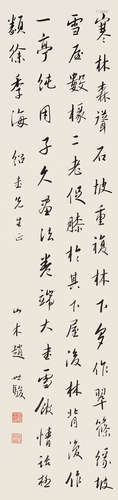 寒林森聳石坡重複林下多作翠篠緣坡
雪屋數椽二老促膝於其下屋後林背復作
一亭純用子久畫法卷端大書雪
類徐季海
先生正
山木趙世駿